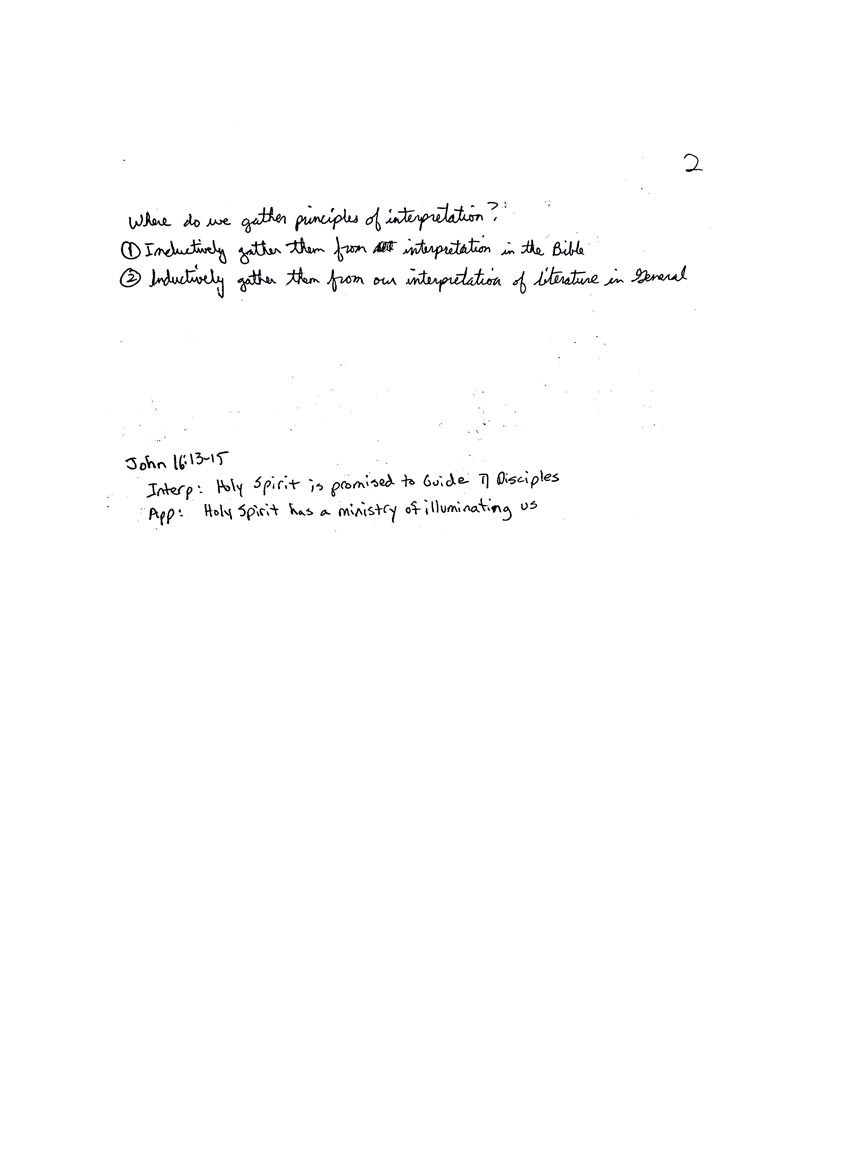 2
Where do we gather principles of interpretation?
① Inductively gather them from interpretation in the Bible
② Inductively gather them from our interpretation of literature in General
John 16:13-15
Interp: Holy Spirit is promised to Guide Disciples
App: Holy Spirit has a ministry of illuminating us